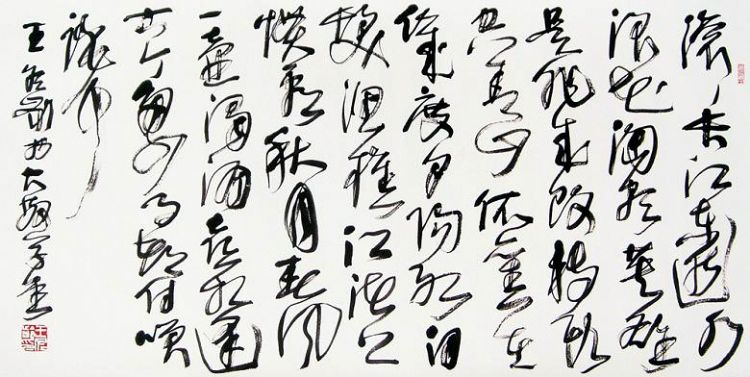 滚滚长江东逝水
浪花淘尽英雄
是非成败转头
空青山依旧在
几度夕阳红白
发渔樵江渚上
惯看秋月春风
一壶浊酒喜相逢
古今多少事都付笑
谈中
王